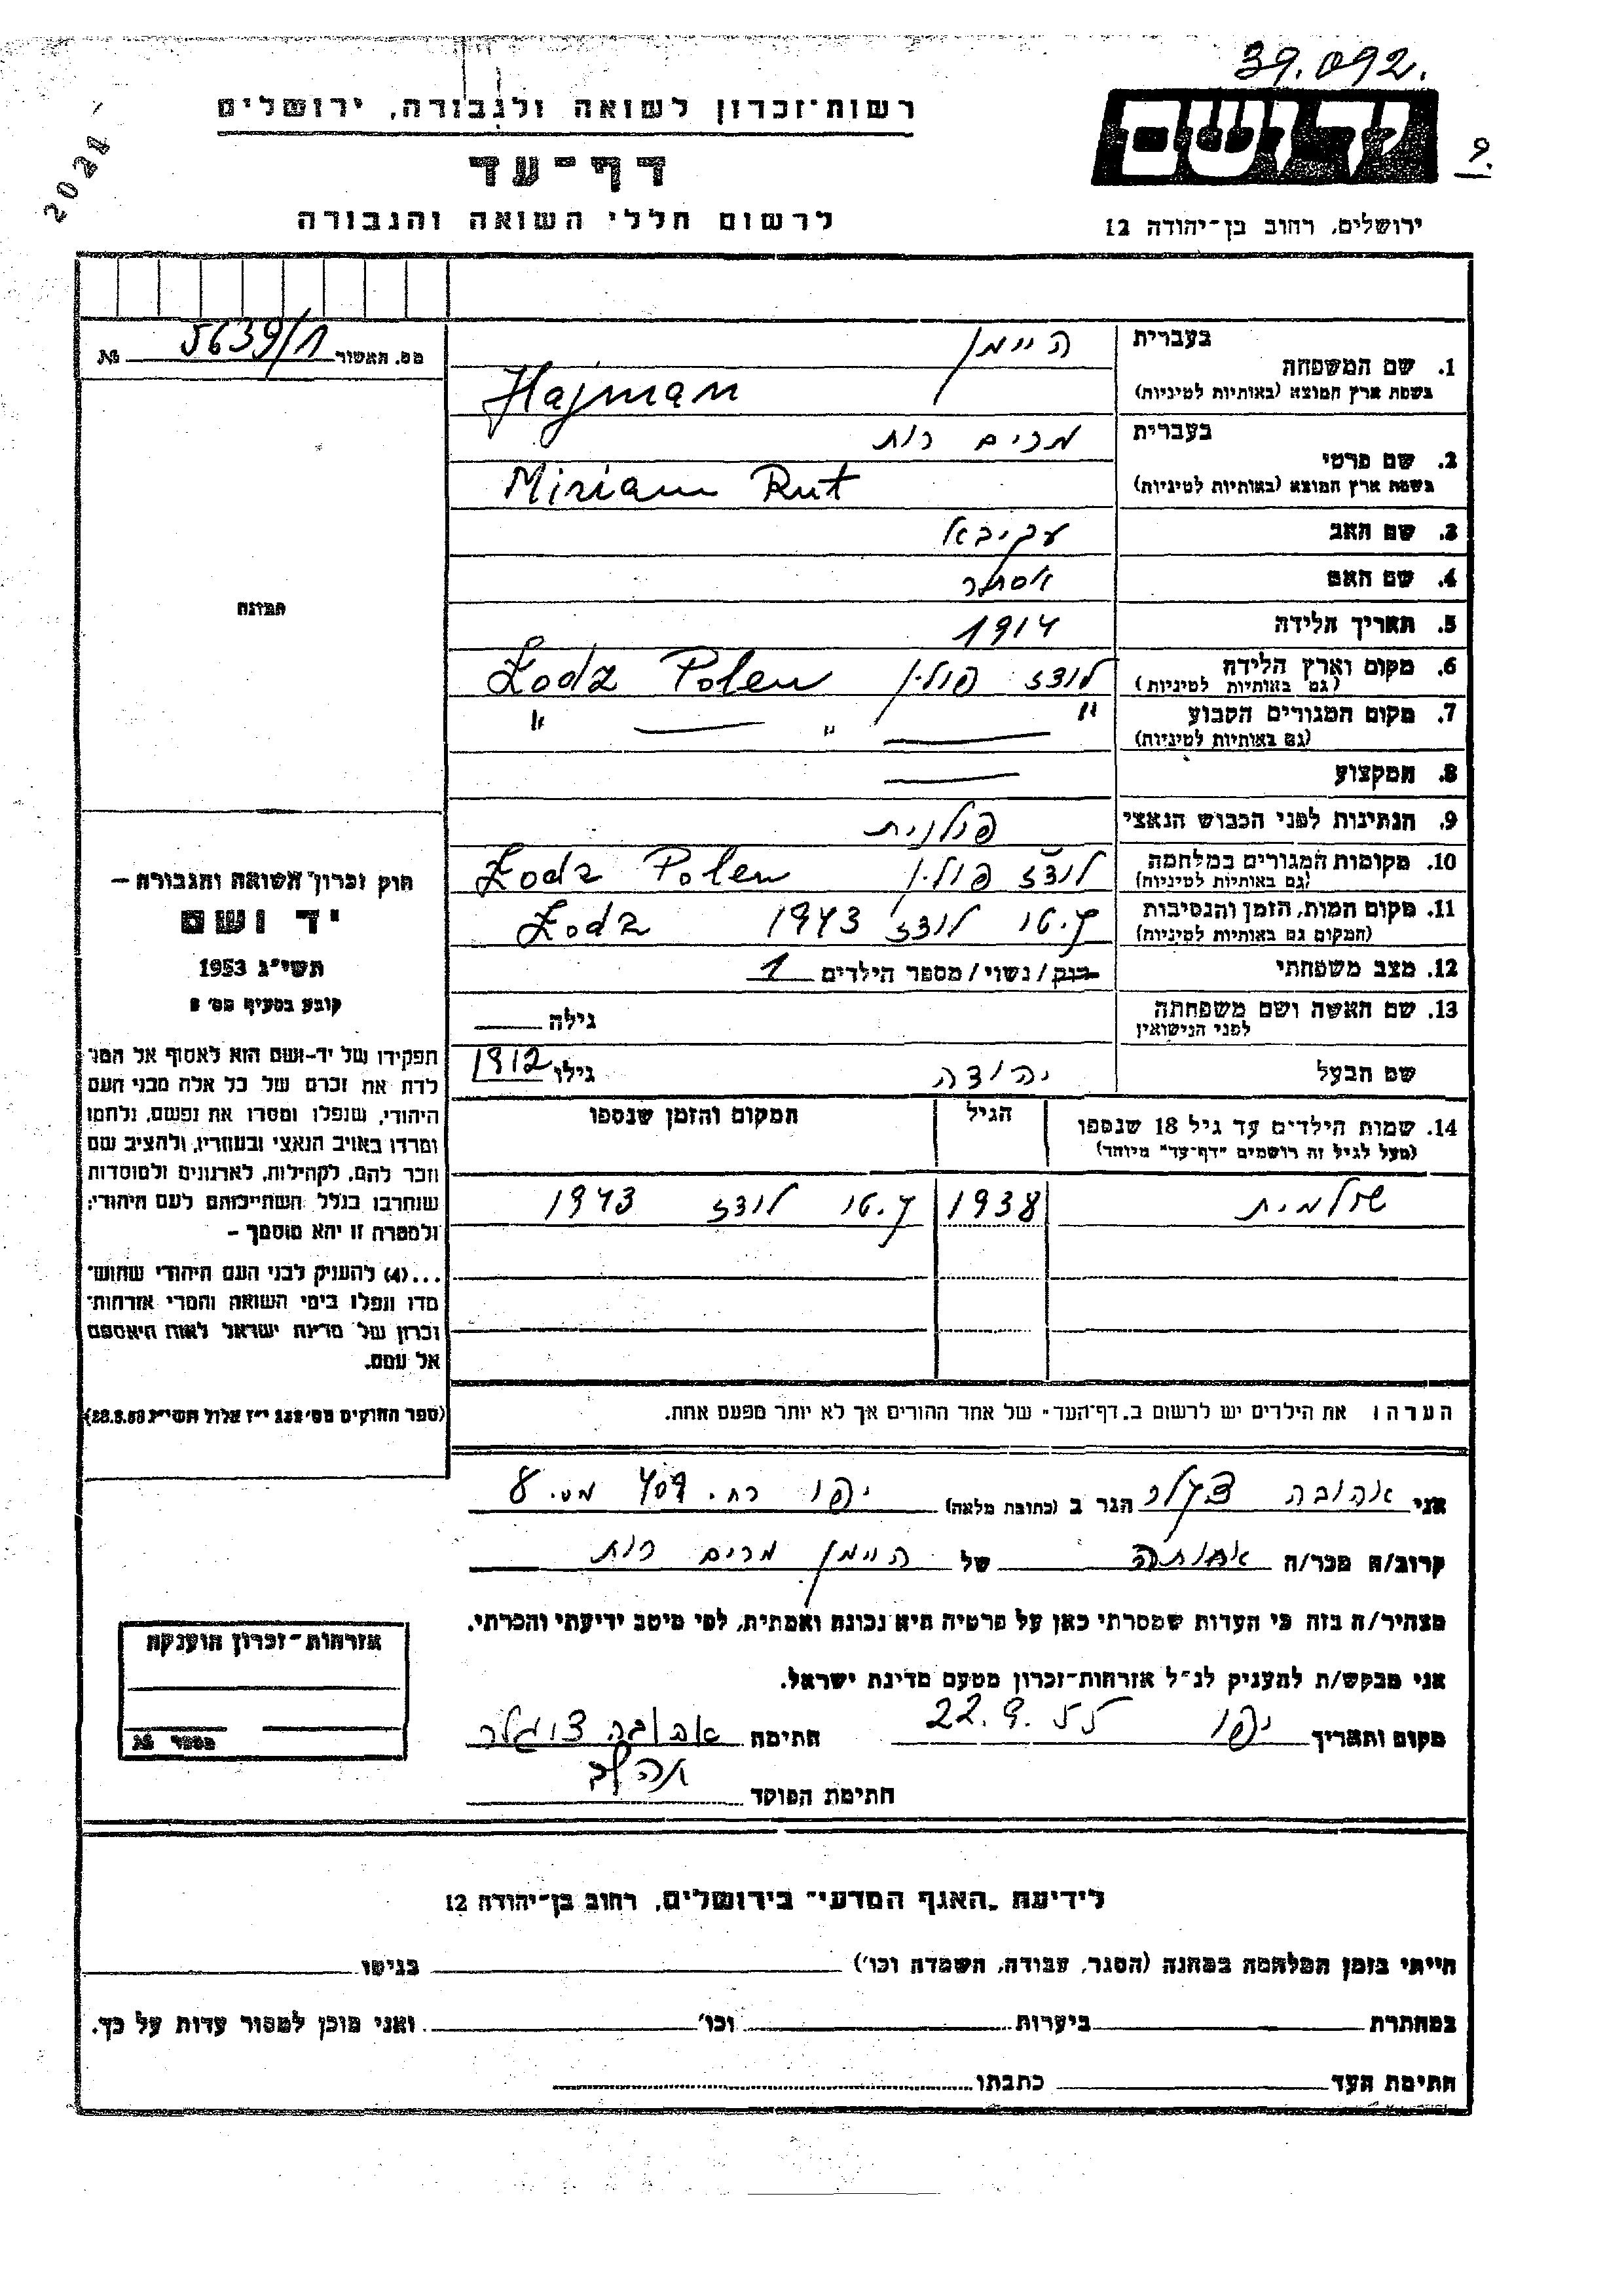 39.092.
רשות-זכרון לשואה ולגבורה, ירושלים
יד ושם
9.
2021
דף-עד
לרשום חללי השואה והגבורה
ירושלים, רחוב בן-יהודה 12
מס. האשור 5639/1 №
בעברית היימן
1. שם המשפחה
בשפת ארץ המוצא (באותיות לטיניות) Hajman
בעברית מרים רות
2. שם פרטי
בשפת ארץ המוצא (באותיות לטיניות) Miriam Rut
3. שם האב עקיבא
4. שם האם אסתר
5. תאריך הלידה 1914
6. מקום וארץ הלידה לודז פולין Łodz Polen
(גם באותיות לטיניות)
7. מקום המגורים הקבוע " — " — "
(גם באותיות לטיניות)
8. המקצוע —
9. הנתינות לפני הכבוש הנאצי פולנית
10. מקומות המגורים במלחמה לודז פולין Łodz Polen
(גם באותיות לטיניות)
11. מקום המות, הזמן והנסיבות גטו לודז 1943 Łodz
(המקום גם באותיות לטיניות)
12. מצב משפחתי רווק/נשוי/מספר הילדים 1
13. שם האשה ושם משפחתה
לפני הנישואין
גילה
שם הבעל יהודה גילו 1912
14. שמות הילדים עד גיל 18 שנספו הגיל המקום והזמן שנספו
(מעל לגיל זה רושמים "דף-עד" מיוחד)
שולמית 1938 גטו לודז 1943
הערה: את הילדים יש לרשום ב"דף-העד" של אחד ההורים אך לא יותר מפעם אחת.
התמונה
חוק זכרון השואה והגבורה —
יד ושם
תשי"ג 1953
קובע בסעיף מס'
תפקידו של יד-ושם הוא לאסוף אל המו
לדת את זכרם של כל אלה מבני העם
היהודי, שנפלו ומסרו את נפשם, נלחמו
ומרדו באויב הנאצי ובעוזריו, ולהציב שם
וזכר להם, לקהילות, לארגונים ולמוסדות
שנחרבו בגלל השתייכותם לעם היהודי;
ולמטרה זו יהא מוסמך —
...(4) להעניק לבני העם היהודי שהוש־
מדו ונפלו בימי השואה והמרי אזרחות־
זכרון של מדינת ישראל לאות היאספם
אל עמם.
(ספר החוקים מס' י"ז אלול תשי"ג
אני אהובה הגר ב (כתובת מלאה) יפו רח. 409 מס. 8
קרוב/ה מכר/ה אחותה של היימן מרים רות
מצהיר/ה בזה כי העדות שמסרתי כאן על פרטיה היא נכונה ואמתית, לפי מיטב ידיעתי והכרתי.
אני מבקש/ת להעניק לנ"ל אזרחות-זכרון מטעם מדינת ישראל.
מקום ותאריך יפו 22.9.55 חתימה אהובה
חתימת הפוקד
אזרחות-זכרון הוענקה
מספר №
לידיעת "האגף המדעי" בירושלים, רחוב בן-יהודה 12
הייתי בזמן המלחמה במחנה (הסגר, עבודה, השמדה וכו') בגיטו
במחתרת ביערות וכו' ואני מוכן למסור עדות על כך.
חתימת העד כתבתו